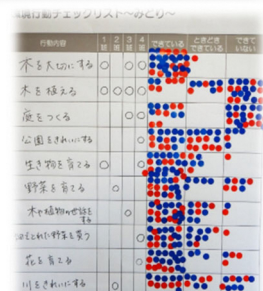 境行動チェックリスト〜みどり〜
行動内容 1班 2班 3班 4班 できている ときどきできている できていない
木を大切にする
木を植える
庭をつくる
公園をきれいにする
生き物を育てる
野菜を育てる
木や植物の世話をする
とれた野菜を買う
花を育てる
川をきれいにする